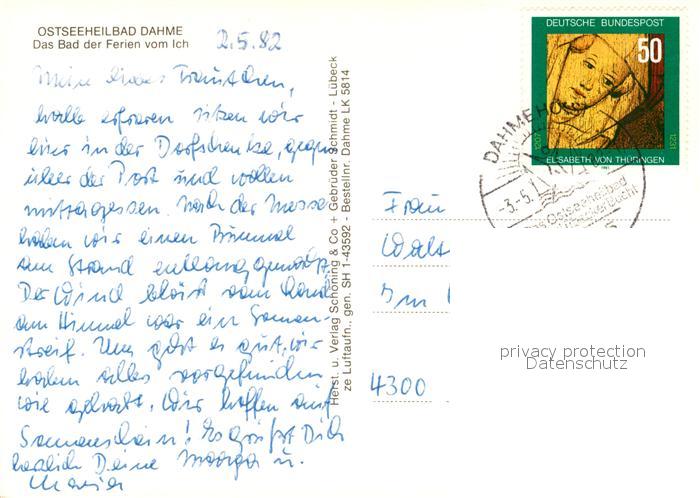 OSTSEEHEILBAD DAHME
Das Bad der Ferien vom Ich
2.5.82
Mein liebes Fräulchen,
halb erfroren sitzen wir
hier in der Dorfschenke, gegen-
über der Post und wollen
mittagessen. Nach der Messe
haben wir einen Bummel
am Strand entlang gemacht.
Der Wind bläst vom Land
am Himmel war ein Sonnen-
streif. Uns geht es gut, wir
haben alles vorgefunden
wie gehabt. Wir hoffen auf
Sonnenschein! Es grüßt Dich
herzlich Deine u.
Maria
Herst. u. Verlag Schöning & Co + Gebrüder Schmidt - Lübeck
ze Luftaufn., gen. SH 1-43592 - Bestellnr. Dahme LK 5814
DEUTSCHE BUNDESPOST
50
1207
1231
ELISABETH VON THÜRINGEN
DAHME
-3.-5.
Ostseeheilbad
Frau
Walt
Im
4300
privacy protection
Datenschutz